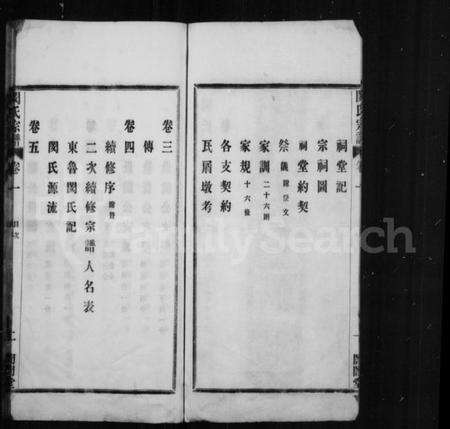 祠堂記
宗祠圖
祠堂約契
祭儀 陳設 文
家訓 二十六則
家規 十六條
各支契約
瓦屑墩考
卷三
傳
卷四
續修序
二次續修宗譜人名表
東魯閔氏記
閔氏源流
卷五
閔氏宗譜 卷一 目次
FamilySearch